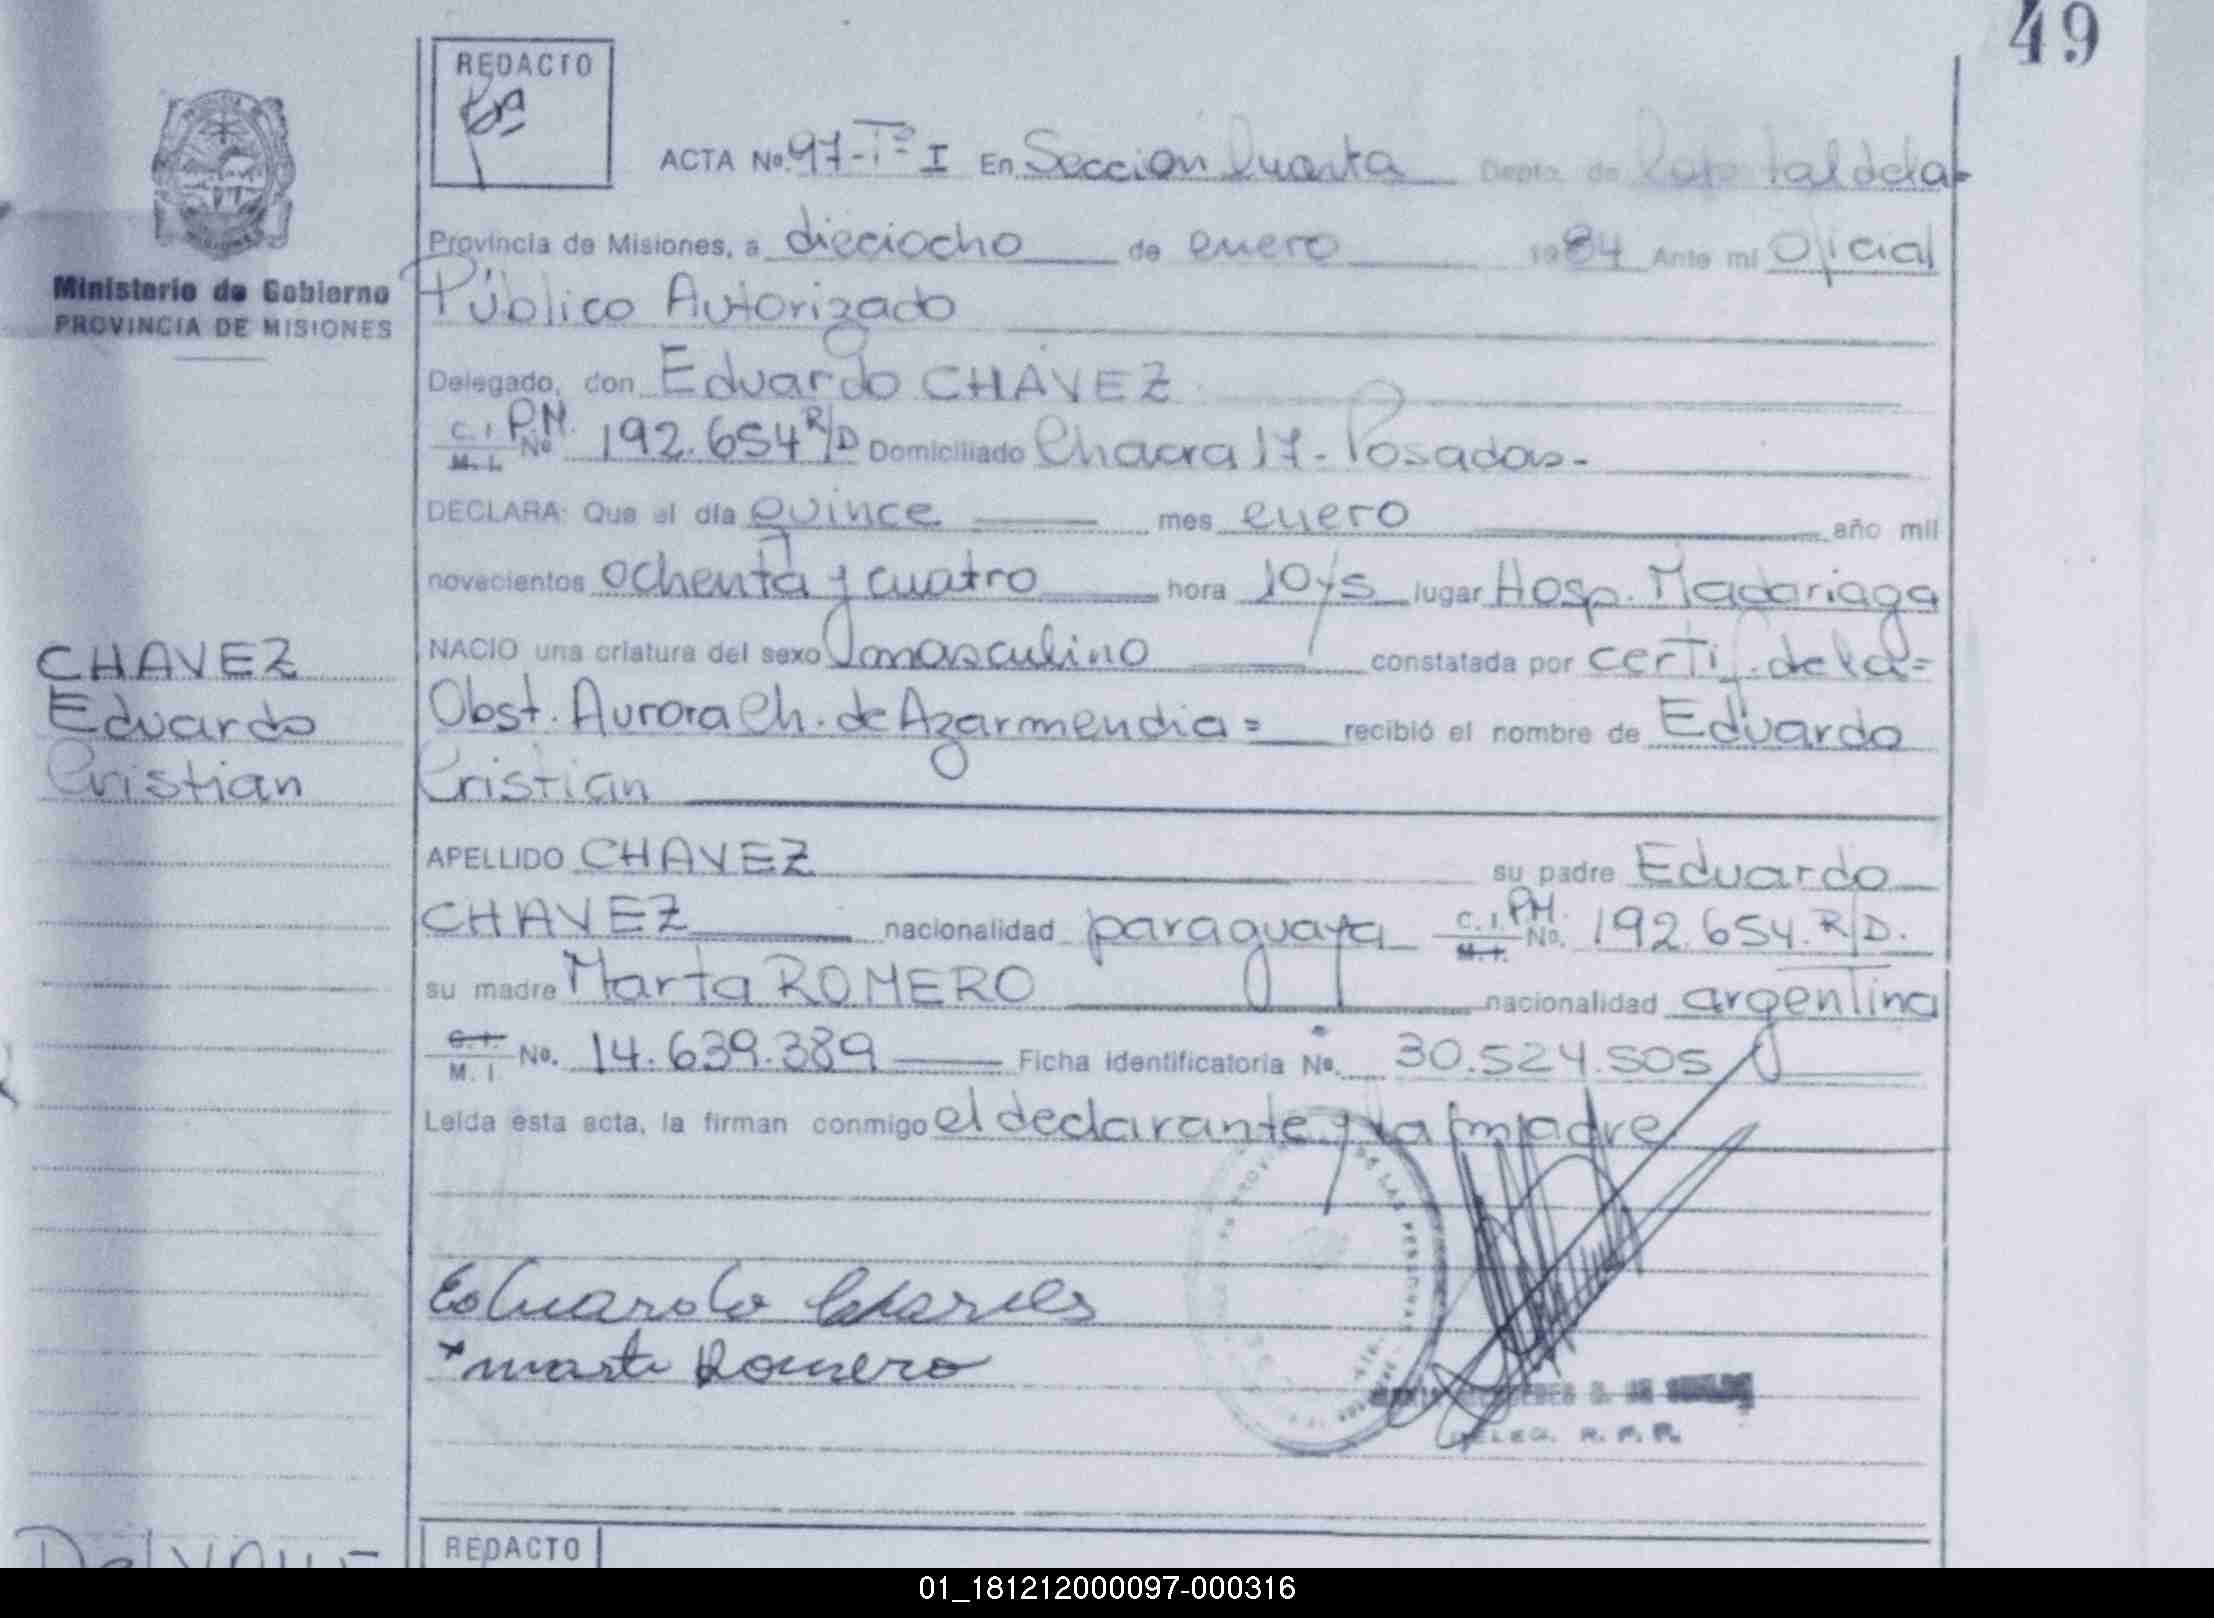 49
REDACTO
ACTA No. 97-Tº I En Sección Cuarta Depto. de Capital de la
Provincia de Misiones, a dieciocho de enero 1984 Ante mí Oficial
Ministerio de Gobierno
PROVINCIA DE MISIONES
Público Autorizado
Delegado, don Eduardo CHAVEZ
C. I. P.M. M. I. No 192.654 R/D Domiciliado Chacra 17 - Posadas -
DECLARA: Que el día quince mes enero año mil
novecientos ochenta y cuatro hora 10 y 5 lugar Hosp. Madariaga
NACIO una criatura del sexo masculino constatada por certif. de la =
Obst. Aurora Ch. de Azarmendia = recibió el nombre de Eduardo
Cristian
CHAVEZ
Eduardo
Cristian
APELLIDO CHAVEZ su padre Eduardo
CHAVEZ nacionalidad paraguaya C. I. P.M. M. I. No. 192.654. R/D.
su madre Marta ROMERO nacionalidad argentina
C. I. M. I. No. 14.639.389 Ficha identificatoria No. 30.524.505
Leída esta acta, la firman conmigo el declarante y la madre
DE LAS PERSONAS
Eduardo Chavez
x Marta Romero
DELEG. R. P. P.
REDACTO
01_181212000097-000316